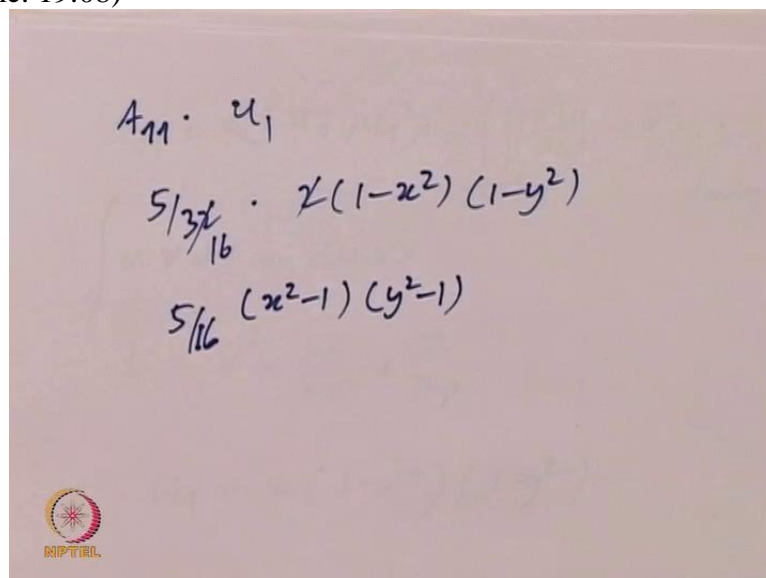 A₁₁ · u₁
5/32 16 · 2(1-x²)(1-y²)
5/16 (x²-1)(y²-1)
NPTEL